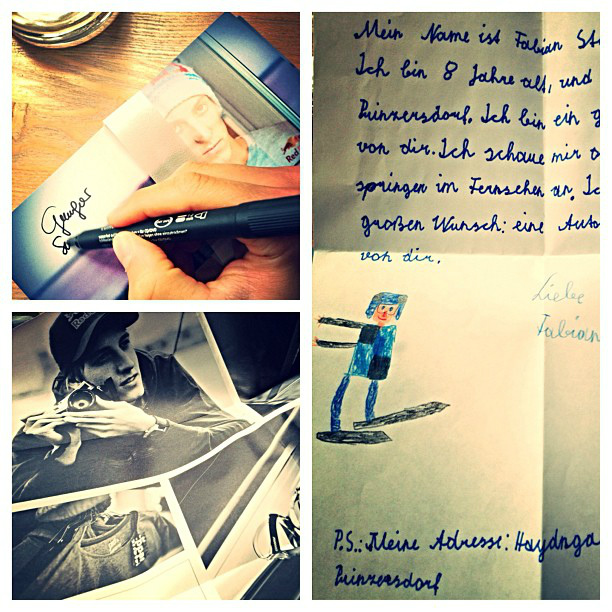 Gregor
Red
Mein Name ist Fabian St
Ich bin 8 Jahre alt, und
Prinzersdorf. Ich bin ein g
von dir. Ich schaue mir
springen im Fernsehen an. Ic
großen Wunsch: eine Auto
von dir.
Liebe
Fabian
P.S.: Meine Adresse: Haydnga
Prinzersdorf